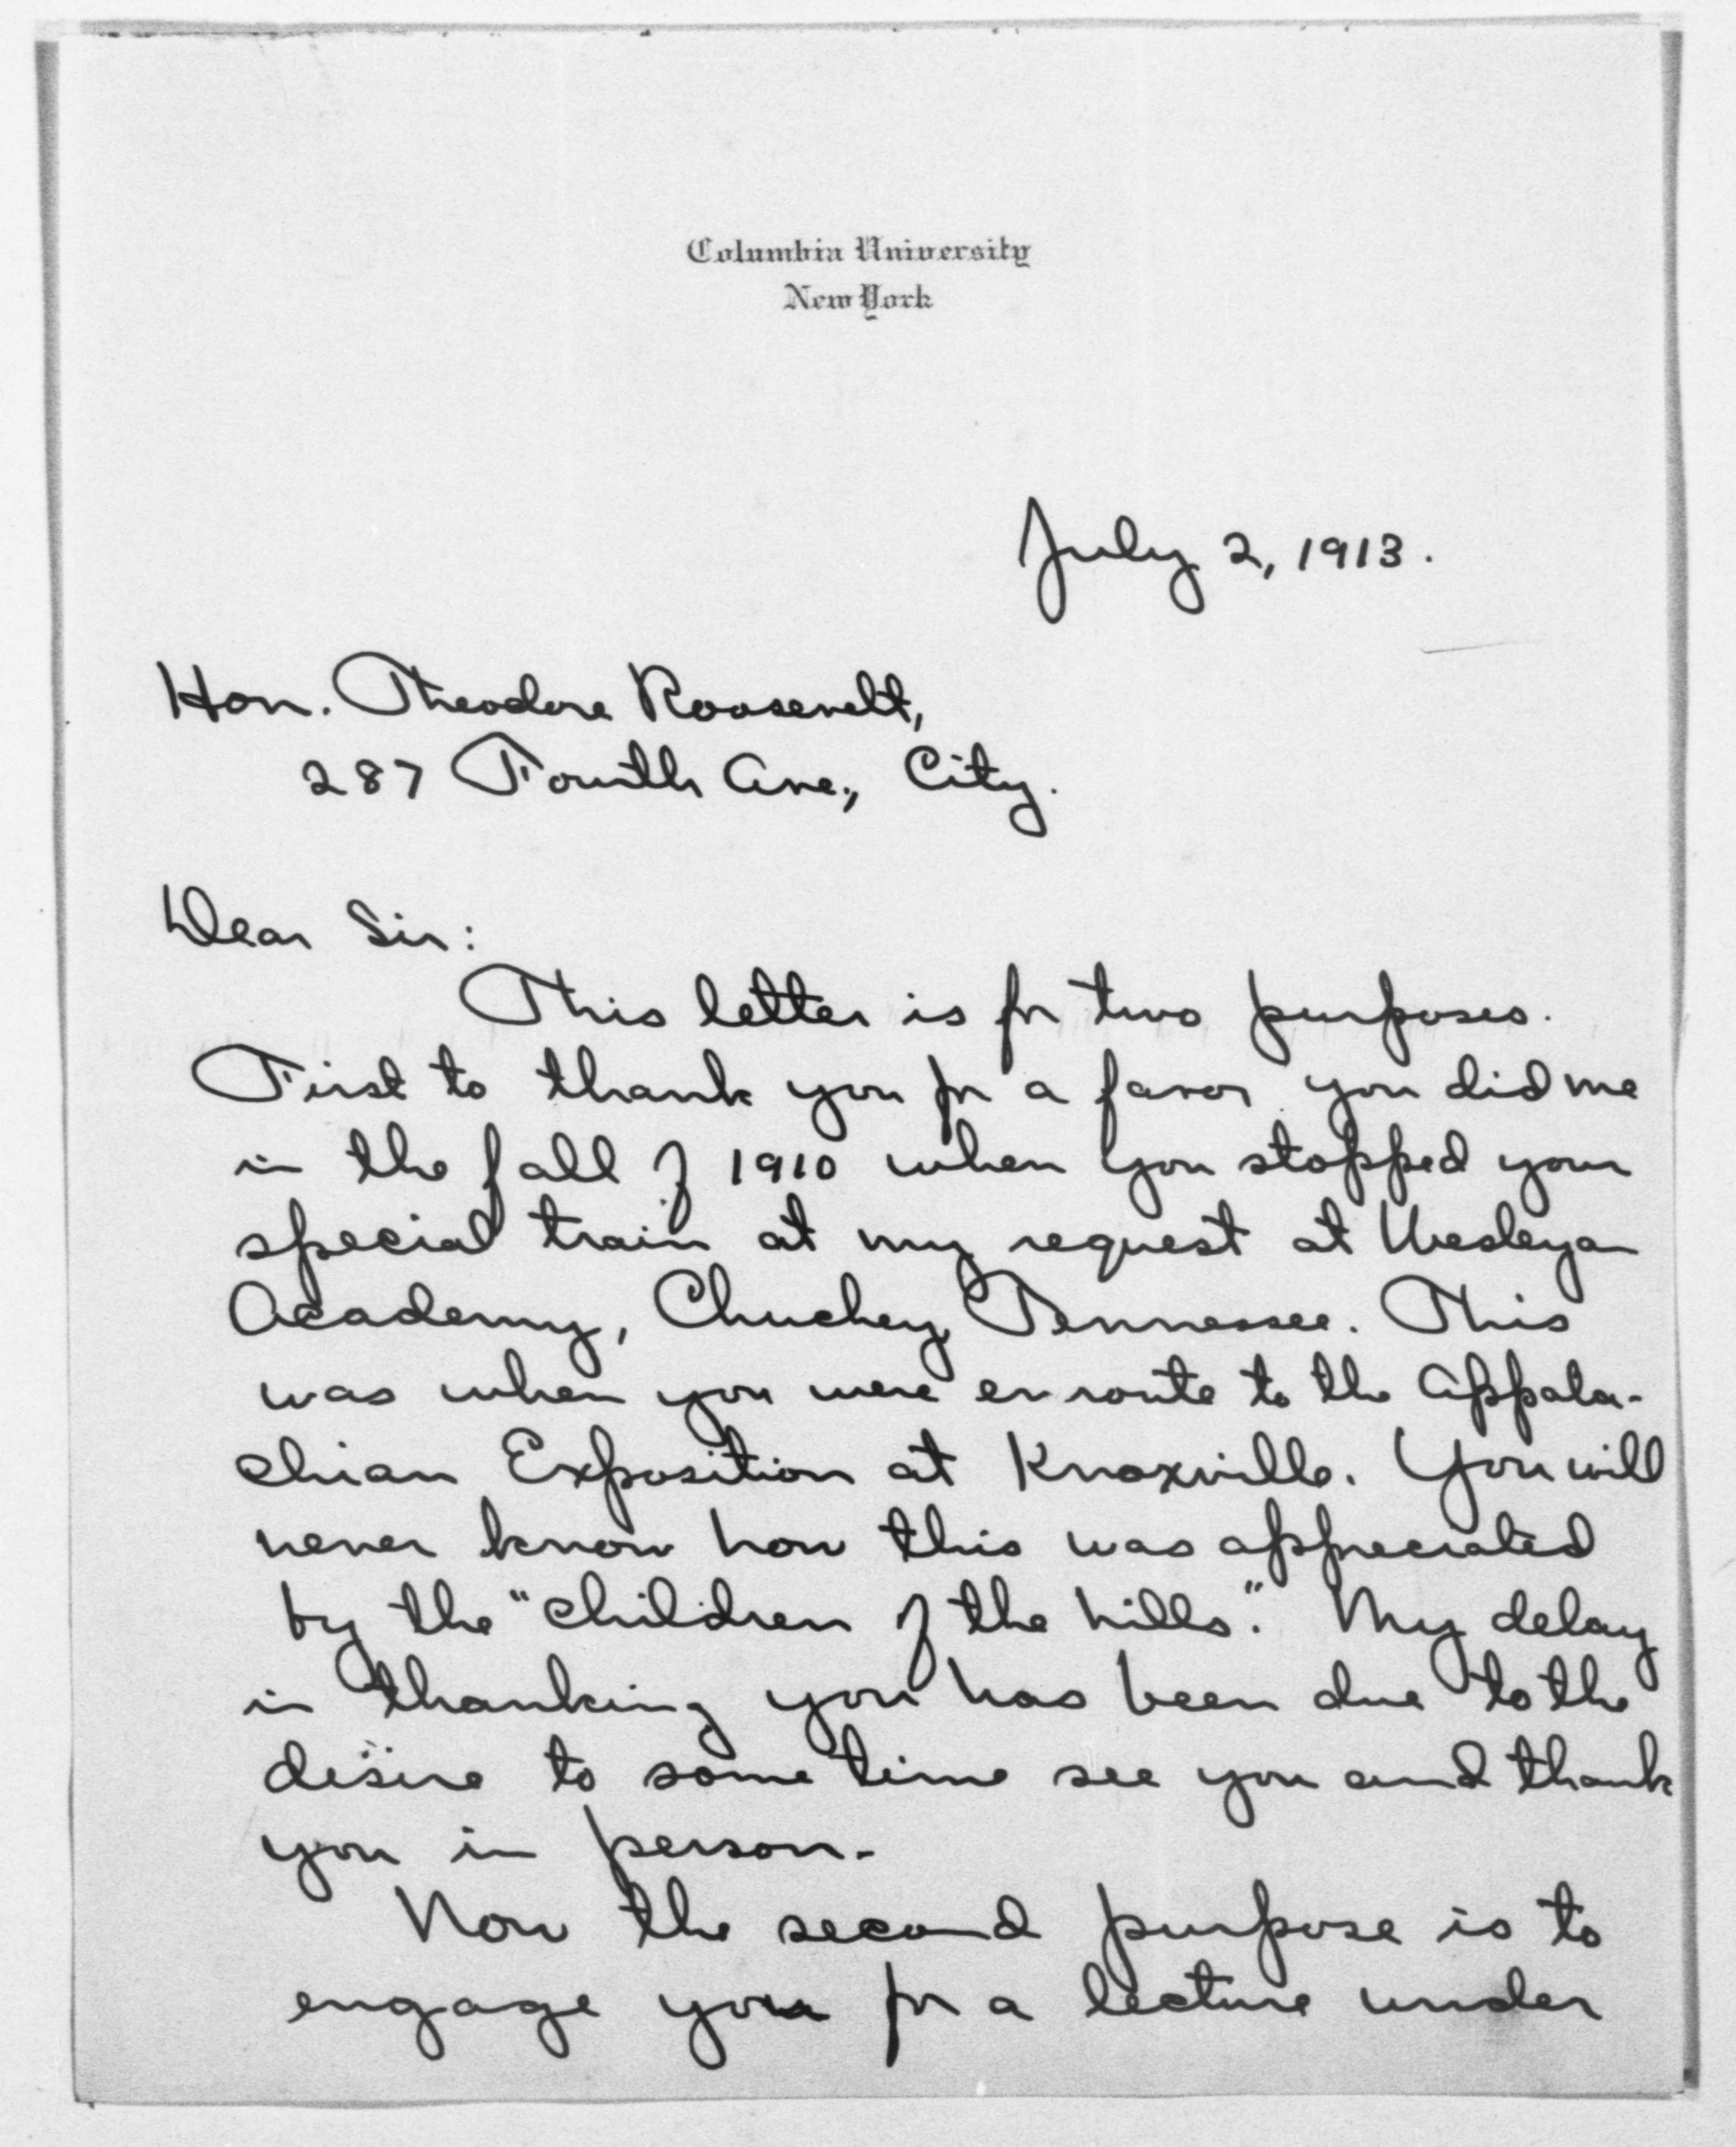 Columbia University
New York
July 2, 1913.
Hon. Theodore Roosevelt,
287 Fourth Ave., City.
Dear Sir:
This letter is for two purposes.
First to thank you for a favor you did me
in the fall of 1910 when you stopped your
special train at my request at Wesleyan
Academy, Chuckey, Tennessee. This
was when you were enroute to the Appala-
chian Exposition at Knoxville. You will
never know how this was appreciated
by the "children of the hills." My delay
in thanking you has been due to the
desire to some time see you and thank
you in person.
Now the second purpose is to
engage you for a lecture under